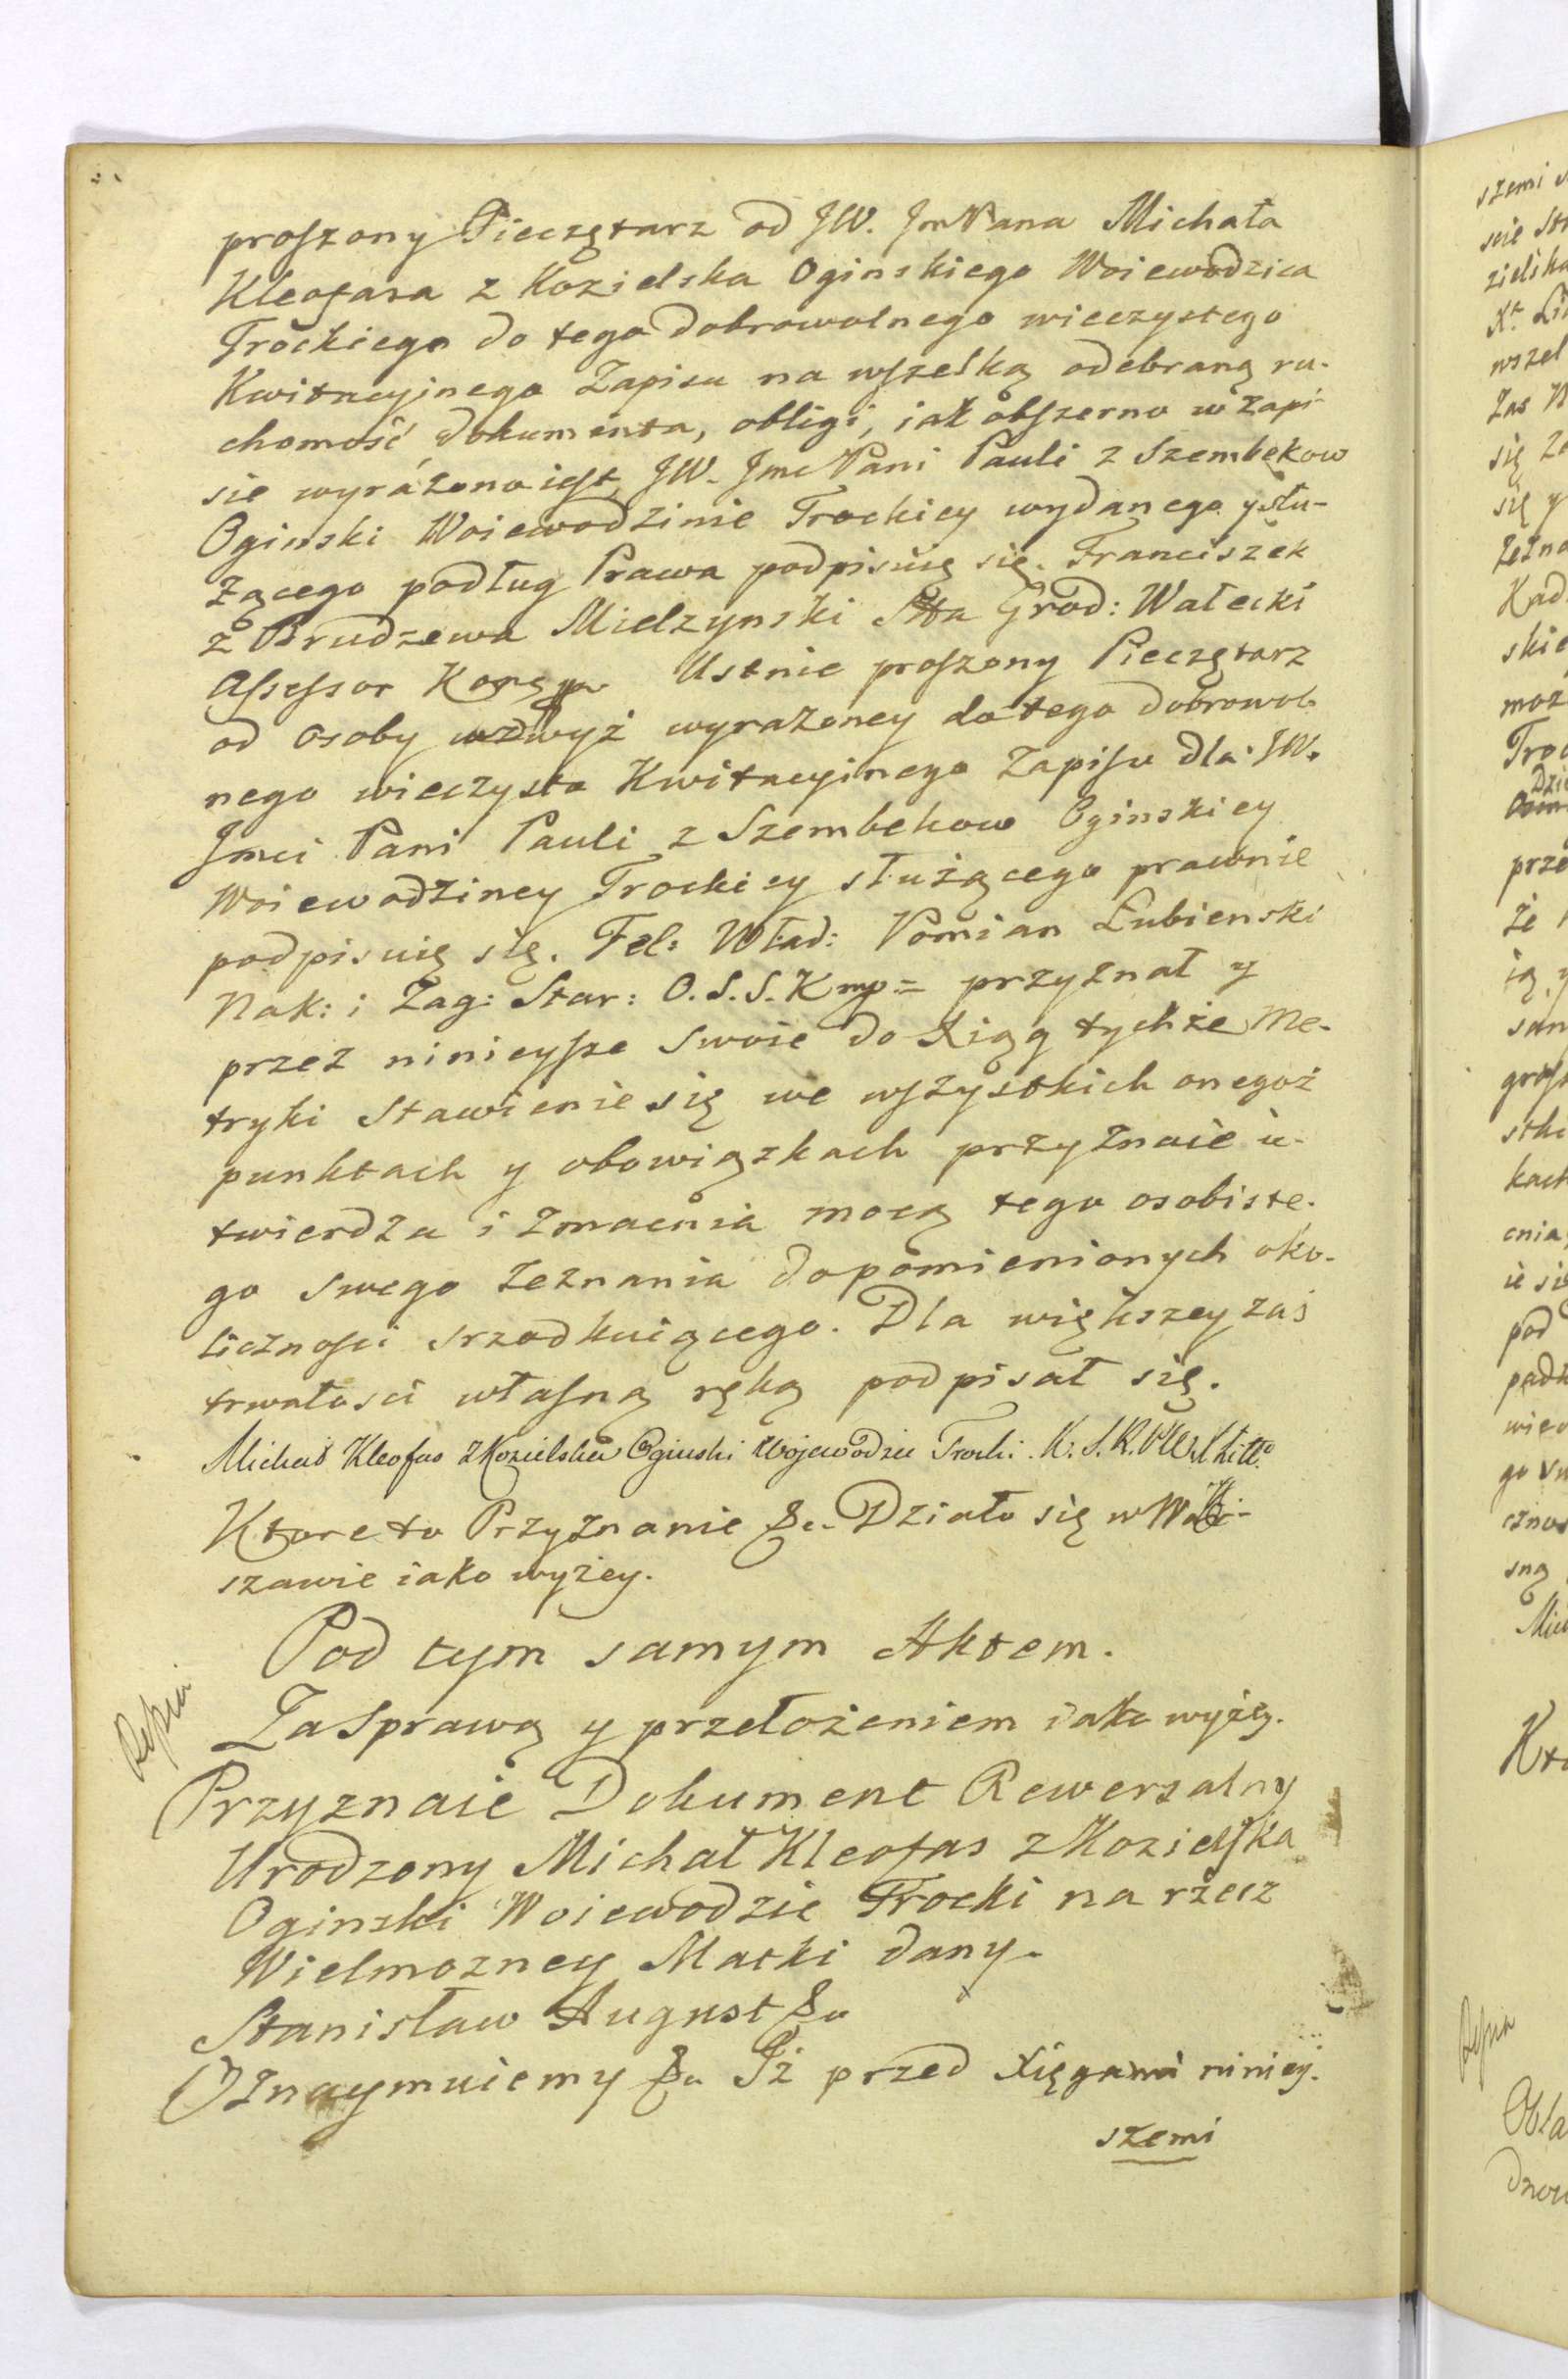 proszony Pieczętarz od JW. JmPana Michała
Kleofasa z Kozielska Oginskiego Woiewodzica
Trockiego do tego dobrowolnego wieczystego
Kwitacyjnego Zapisu na wszelką odebraną ru-
chomość dokumenta, obligi, iak obszerno w Zapi-
sie wyrażono iest, JW. Jmc Pani Pauli z Szembekow
Oginski Woiewodzinie Trockiey wydanego y słu-
żącego podług Prawa podpisuię się. Franciszek
z Brudzewa Mielzynski Stta Grod: Wałecki
Assessor Ustnie proszony Pieczętarz
od osoby wzwyż wyrażoney do tego dobrowol-
nego wieczysto Kwitacyinego Zapisu dla JW.
Jmci Pani Pauli z Szembekow Oginskiey
Woiewodziney Trockiey służącego prawnie
podpisuię się. Fel: Wład: Pomian Łubienski
Nak: i Zag: Star: O. S. S. K mp = przyznał y
przez ninieysze swoie do Xiąg tychże Me-
tryki Stawienie się we wszystkich onegoż
punktach y obowiązkach przyznaie u-
twierdza i zmacnia mocą tego osobiste-
go swego zeznania dopomienionych oko-
liczności srzodkuiącego. Dla większey zaś
trwałosci własną ręką podpisał się.
Michał Kleofas z Kozielska Oginski Wojewodzic Trocki.
Ktore to Przyznanie &c. Działo się w War-
szawie iako wyżey.
Pod tym samym Aktem.
Za Sprawą y przełożeniem iako wyżey.
Przyznaie Dokument Rewersalny
Urodzony Michał Kleofas z Kozielska
Oginski Woiewodzic Trocki na rzecz
Wielmozney Matki dany.
Stanisław August &c
Oznaymuiemy &c Iż przed Xięgami niniey-
szemi